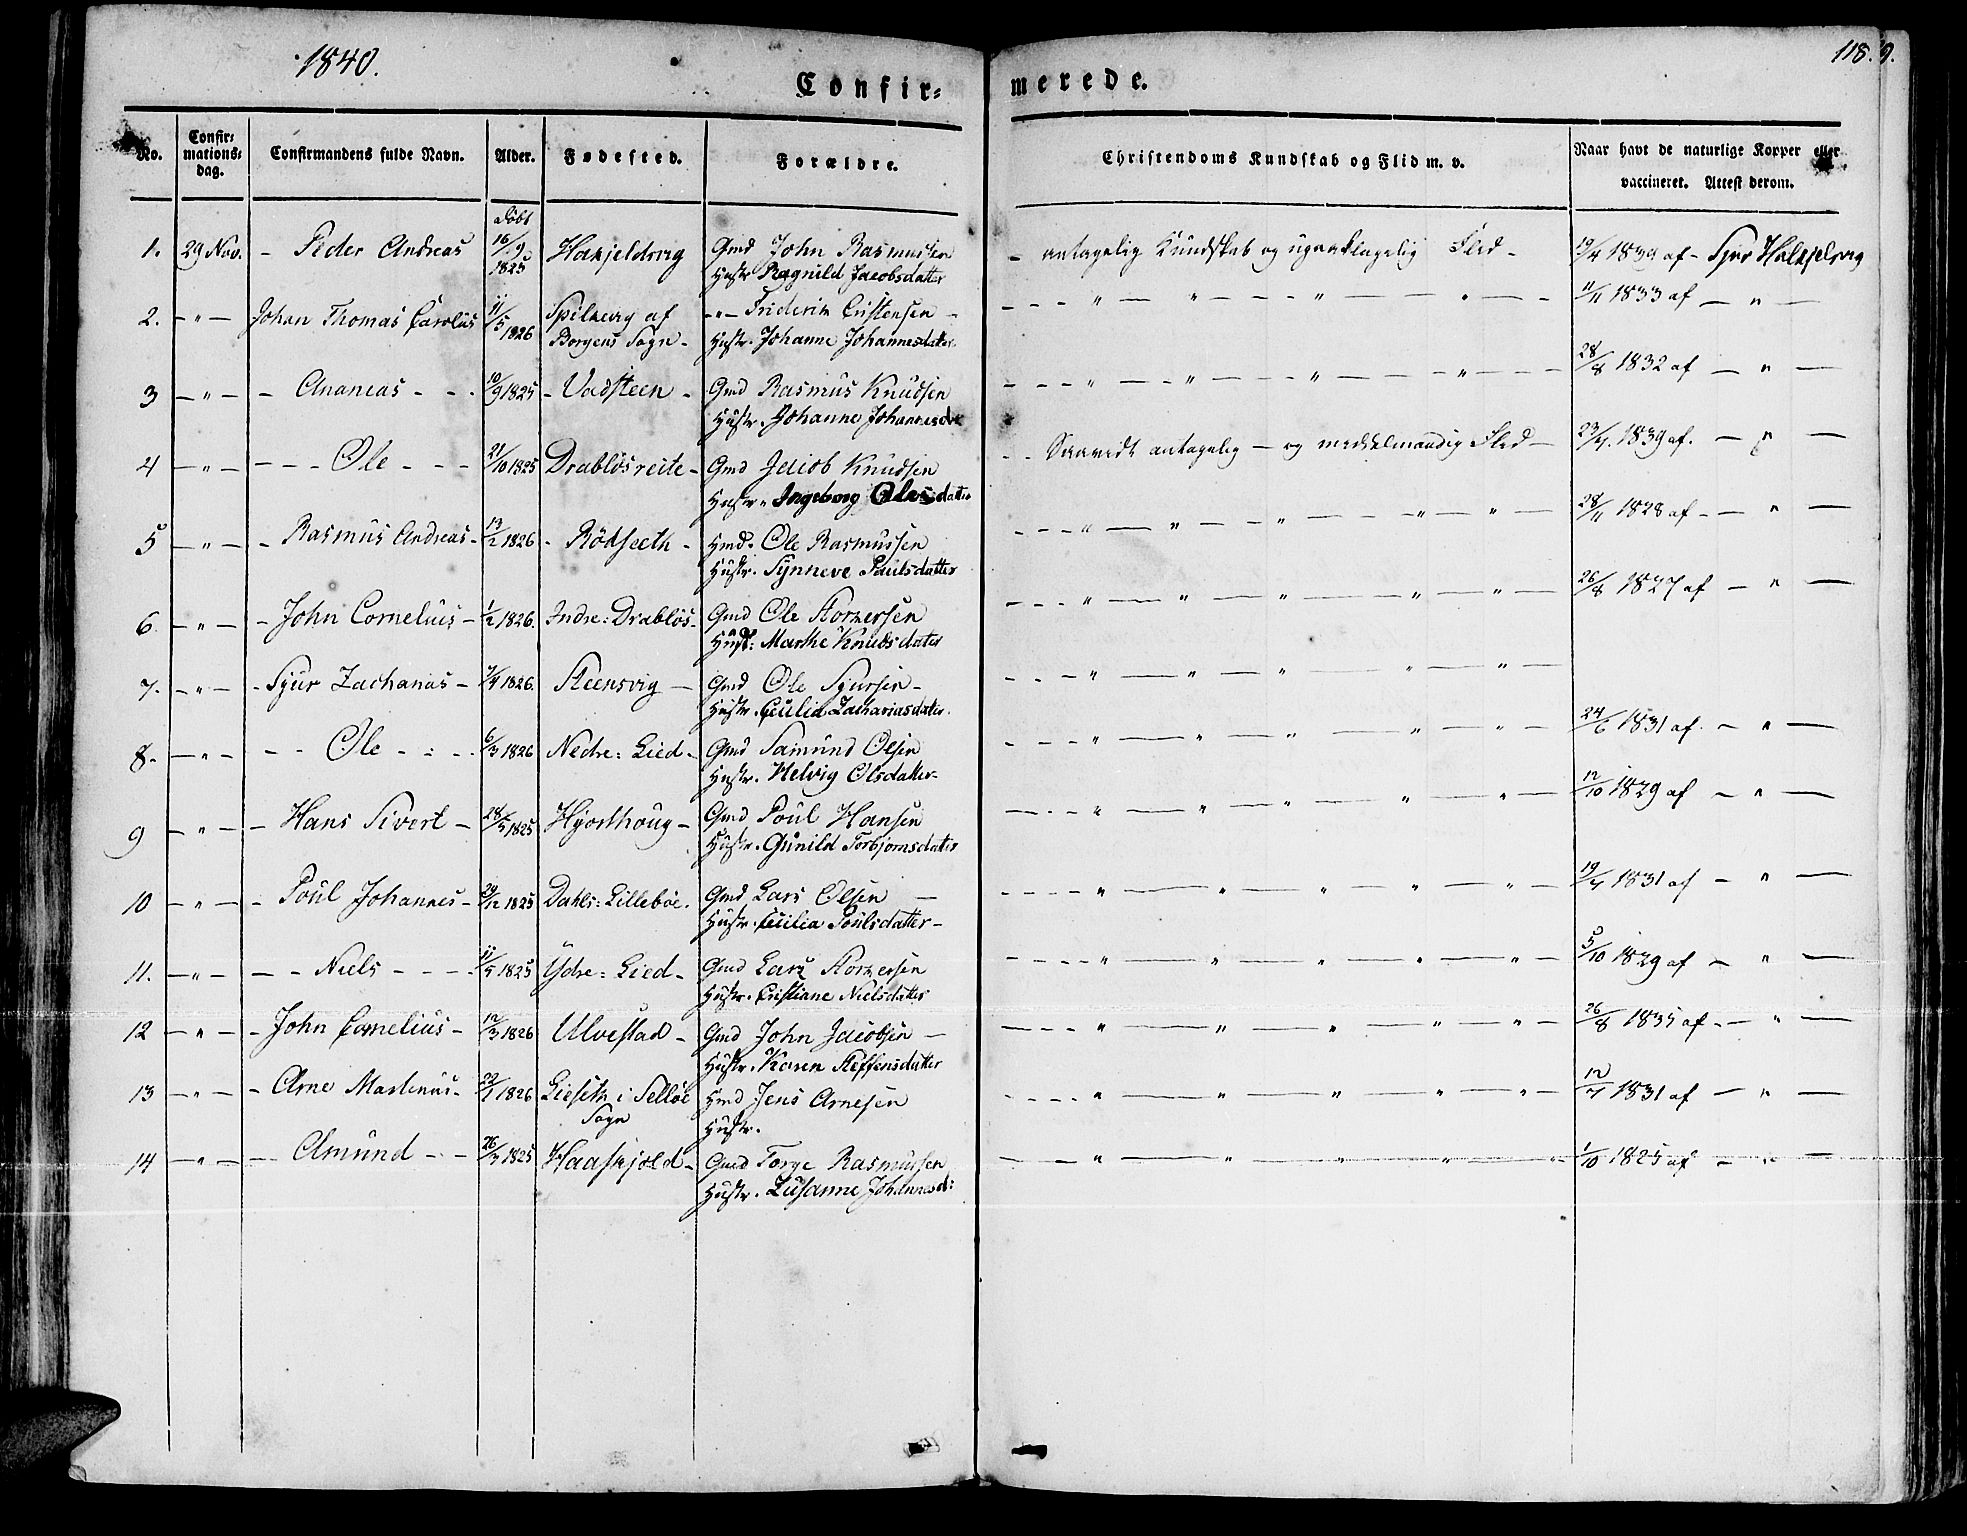 1840.
118. 9.
Confir= merede.
No. Confir= mations= dag. Confirmandens fulde Navn. Alder. Fødested. Forældre. Christendoms Kundskab og Flid m. v. Naar havt de naturlige Kopper eller vaccineret. Attest derom.
døbt
1. 29 Nov. - Peder Andreas 16/9 1825 Gmd John Rasmussen - antagelig Kundskab og upaaklagelig Flid - 19/4 1839 af - Sjur
Hustr Ragnild Jacobsdatter
2. - " - Johan Thomas Carolus 11/5 1826 Spilkevig af - " - Friderik Cristensen - - - - " - " - - " - - " - - 11/11 1833 af - " -
Borgens Sogn - Hustr. Johanne Johannesdatter
3 - " - - Ananeas - - - 10/9 1825 - Vadsteen - Gmd Rasmus Knudsen - - - " - - " - - " - - " - - - 28/8 1832 af - " -
Hustr. Johanne Johannesdr
4 - " - - - - Ole - - - 21/10 1825 Drabløsreite - Gmd Jacob Knudsen - - Saavidt antagelig - og middelmaadig Flid - 23/7. 1839 af. - " -
Hustr. Ingeborg Olesdatter
5 - " - - Rasmus Andreas - 13/2 1826 - Rødseeth - Hmd. Ole Rasmussen - - - " - " - - " - - " - " - 28/11 1828 af - - " -
Hustr. Synneve Paulsdatter
6. - " - - John Cornelius - 1/2 1826. Indre: Drabløs - Gmd Ole Kornersen - - - " - " - - " - - " - " - 26/8 1827 af - " -
Hustr: Marthe Knudsdatter
7. - " - - Sjur Zacharias - 7/4 1826. Steensvig - Gmd Ole Sjursen - - - - " - " - - " - - " - " -
Hustr. Cecilia Zachariasdatter.
8 - - " - - - Ole - : - . 6/3 1826 Nedre: Lied - Gmd Samund Olsen - - - " - " - - " - - " - " - 24/6 1831 af. - " -
Hustr. Helvig Olsdatter -
9 - " - - Hans Sivert - 28/5 1825 Hjorthoug - Gmd Poul Hansen - - - " - " - - " - - " - " - 12/10 1829 af - " -
Hustr. Gunild Torbjornsdatter
10 - " - - Poul Johannes - 29/12 1825 Dahls: Lillebøe. Gmd Lars Olsen - - - - " - " - - " - - " - " - 19/7 1831 af - " -
Hustr. Cecilia Poulsdatter -
11. - " - - - Niels - - - . 11/5 1825 Ydre: Lied - Gmd Lars Kornersen - - - " - " - - " - - " - " - 5/10 1829 af - " -
Hustr. Cristiane Nielsdatter
12 - " - - John Cornelius - 12/3 1826 Ulvestad - Gmd John Jacobsen - - - - " - " - - " - - " - " - 26/8 1835 af - - " -
Hustr. Karen Steffensdatter
13 - " - - Arne Martinus - 22/1 1826 Lieseth i Selløe Hmd Jens Arnesen - - - - " - " - - " - - " - " - 12/7 1831 af - " -
Sogn Hustr.
14 - " - - Amund - - - 26/3 1825 Haaskjold - Gmd Torge Rasmussen - - - " - " - - " - - " - " - 1/10 1825 af - " -
Hustr. Susanne Johannesd: